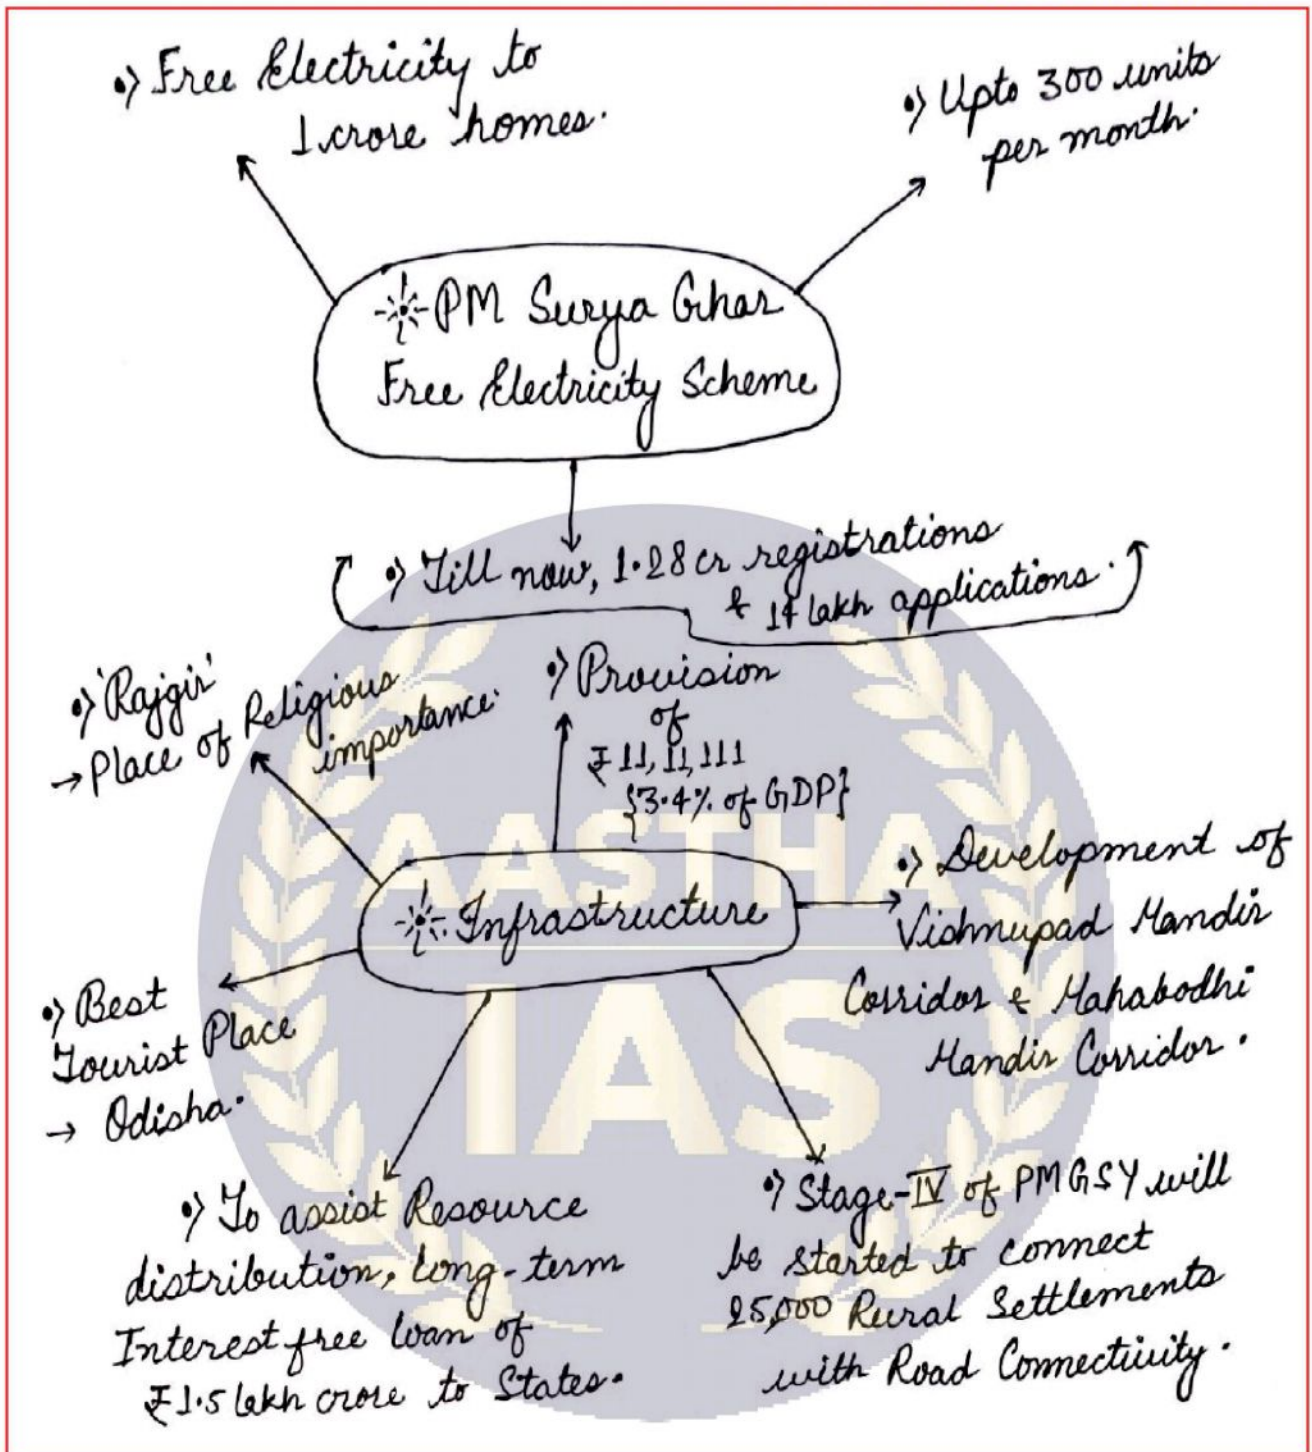 •) Free Electricity to
1 crore homes.
•) Upto 300 units
per month.
PM Surya Ghar
Free Electricity Scheme
•) Till now, 1.28 cr registrations
& 14 lakh applications.
•) 'Rajgir'
→ Place of Religious
importance.
•) Provision
of
₹ 11, 11, 111
{3.4% of GDP}
Infrastructure
•) Development of
Vishnupad Mandir
Corridor & Mahabodhi
Mandir Corridor.
•) Best
Tourist Place
→ Odisha.
•) To assist Resource
distribution, long-term
Interest free loan of
₹1.5 lakh crore to States.
•) Stage-IV of PMGSY will
be started to connect
25,000 Rural Settlements
with Road Connectivity.
AASTHA
IAS